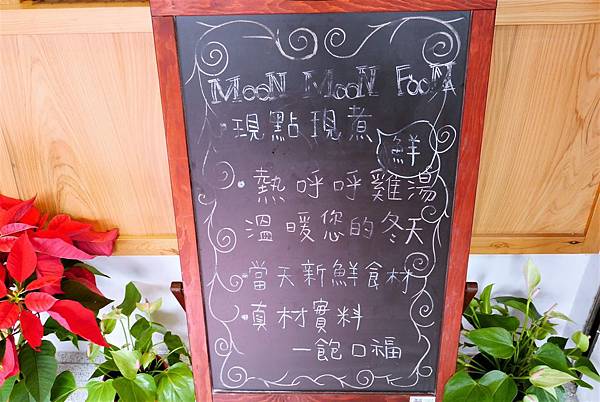 MooN MooN FooD
·現點現煮 鮮
·熱呼呼雞湯
溫暖您的冬天
·當天新鮮食材
·真材實料
一飽口福